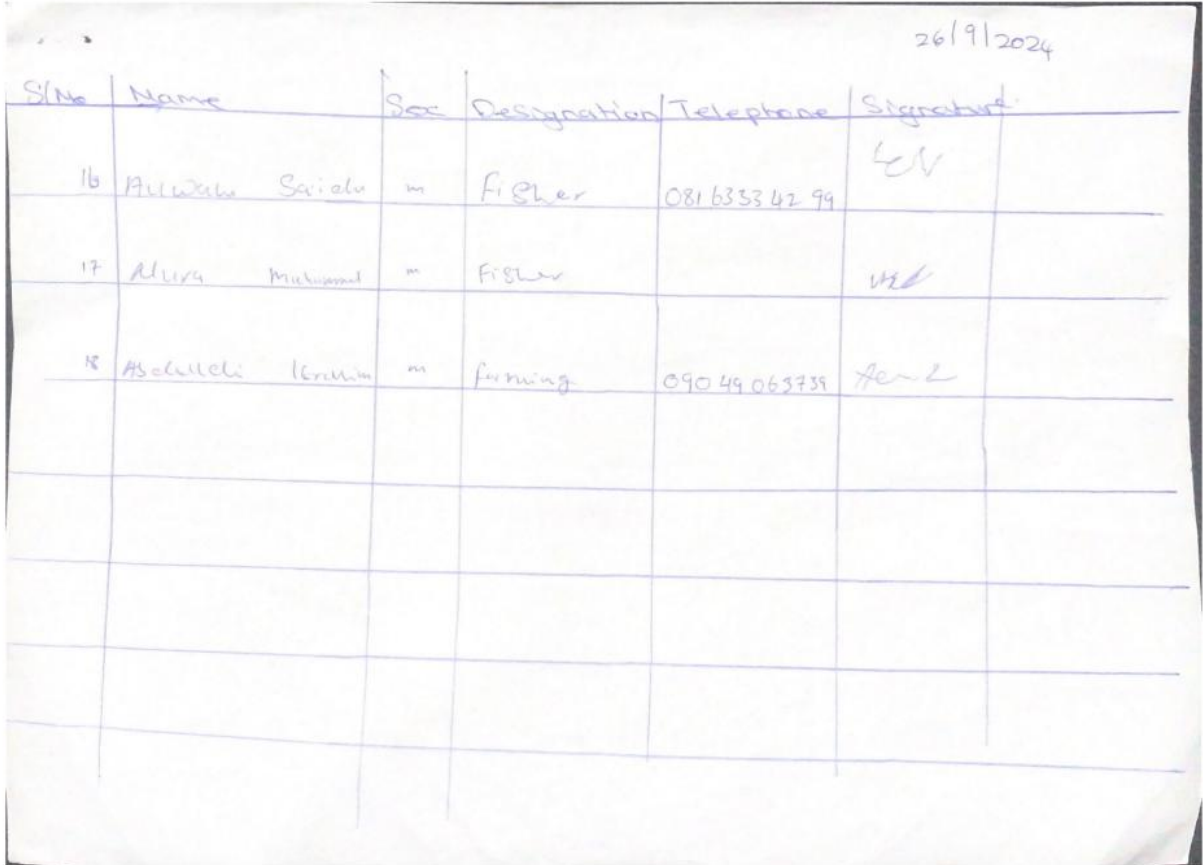 26/9/2024
S/No Name Sex Designation Telephone Signature
16 Auwalu Saidu m Fisher 081 633342 99
17 Nura Muhammad m Fisher
18 Abdullahi Ibrahim m farming 090 49 063739